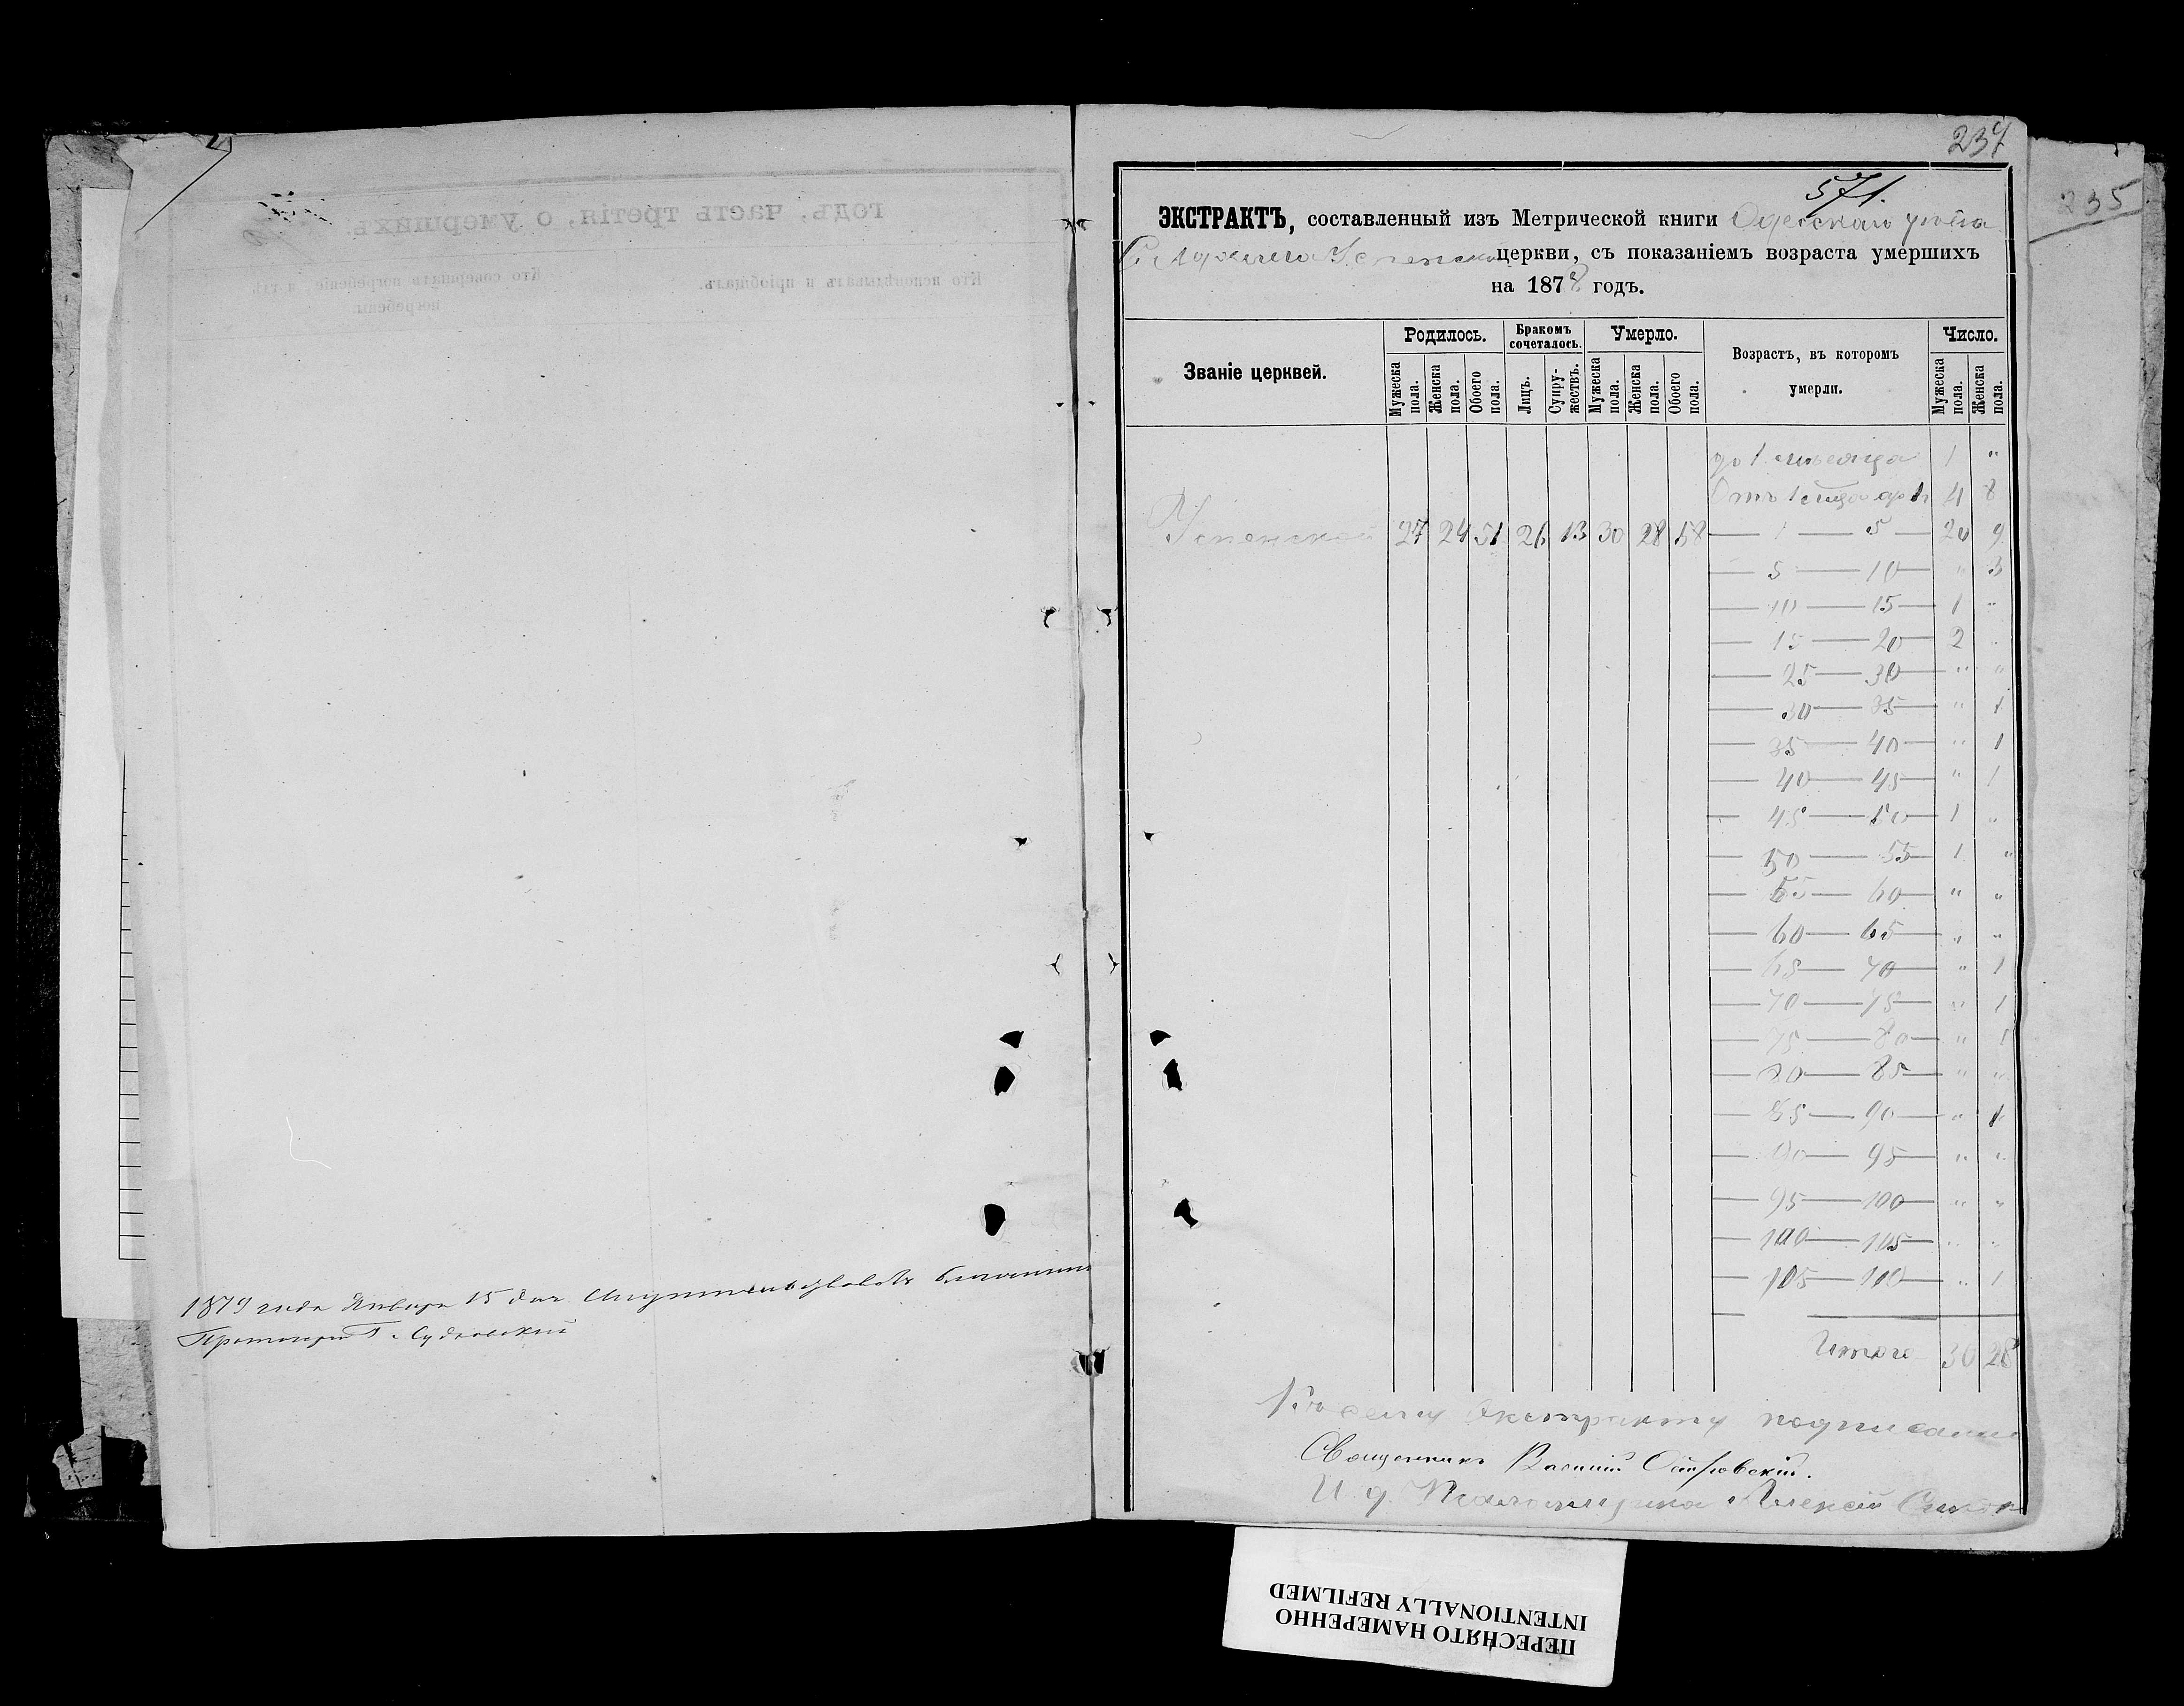 1879 года Января 15 дня
Протоіерей Г. Судковскій
237
571.
ЭКСТРАКТЪ, составленный изъ Метрической книги Одесскаго уѣзда
С. Успенской церкви, съ показаніемъ возраста умершихъ
на 1878 годъ.
Званіе церквей.
Родилось.
Бракомъ сочеталось.
Умерло.
Возрастъ, въ которомъ умерли.
Число.
Мужеска пола. Женска пола. Обоего пола. Лицъ. Супружествъ. Мужеска пола. Женска пола. Обоего пола. Мужеска пола. Женска пола.
до 1 мѣсяца 1 "
Отъ 1 до 1 4 8
Успенской 27 24 51 26 13 30 28 58 — 1 — 5 — 20 9
— 5 — 10 — " 3
— 10 — 15 — 1 "
— 15 — 20 — 2 "
— 25 — 30 — " "
— 30 — 35 — " 1
— 35 — 40 — " 1
— 40 — 45 — " 1
— 45 — 50 — 1 "
— 50 — 55 — 1 "
— 55 — 60 — " "
— 60 — 65 — " "
— 65 — 70 — " 1
— 70 — 75 — " 1
— 75 — 80 — " 1
— 80 — 85 — " "
— 85 — 90 — " 1
— 90 — 95 — " "
— 95 — 100 — " "
— 100 — 105 — " "
— 105 — 110 — " 1
Итого 30 28
Къ сему Экстракту подписались
Священникъ Василій Островскій.
И. д. Псаломщика Алексій
235
ПЕРЕСНЯТО НАМЕРЕННО
INTENTIONALLY REFILMED